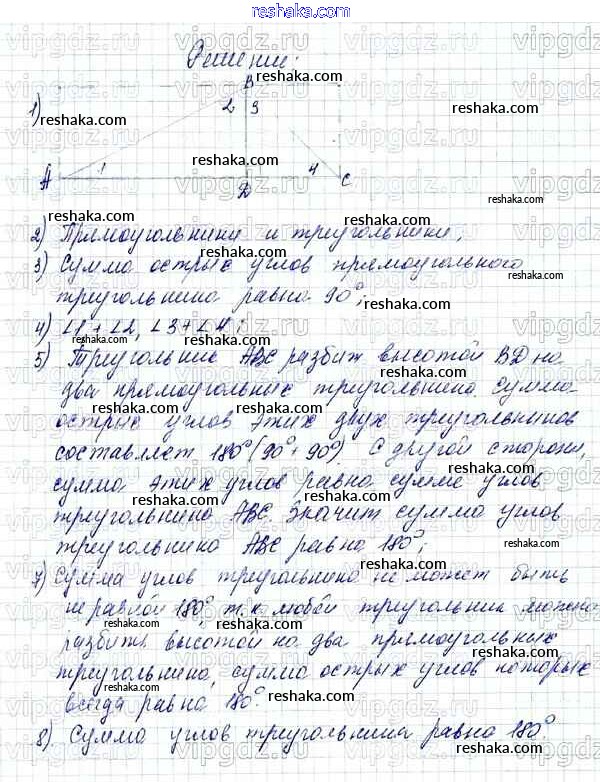 reshaka.com
Решение:
1)
B
2 3
A 1 D 4 C
2) Прямоугольники и треугольники;
3) Сумма острых углов прямоугольного
треугольника равна 90°;
4) ∠1+∠2, ∠3+∠4;
5) Треугольник ABC разбит высотой BD на
два прямоугольных треугольника. Сумма
острых углов этих двух треугольников
составляет 180° (90°+90°). С другой стороны,
сумма этих углов равна сумме углов
треугольника ABC. Значит сумма углов
треугольника ABC равна 180°;
7) Сумма углов треугольника не может быть
не равной 180°, т.к. любой треугольник можно
разбить высотой на два прямоугольных
треугольника, сумма острых углов которых
всегда равна 180°.
8). Сумма углов треугольника равна 180°.